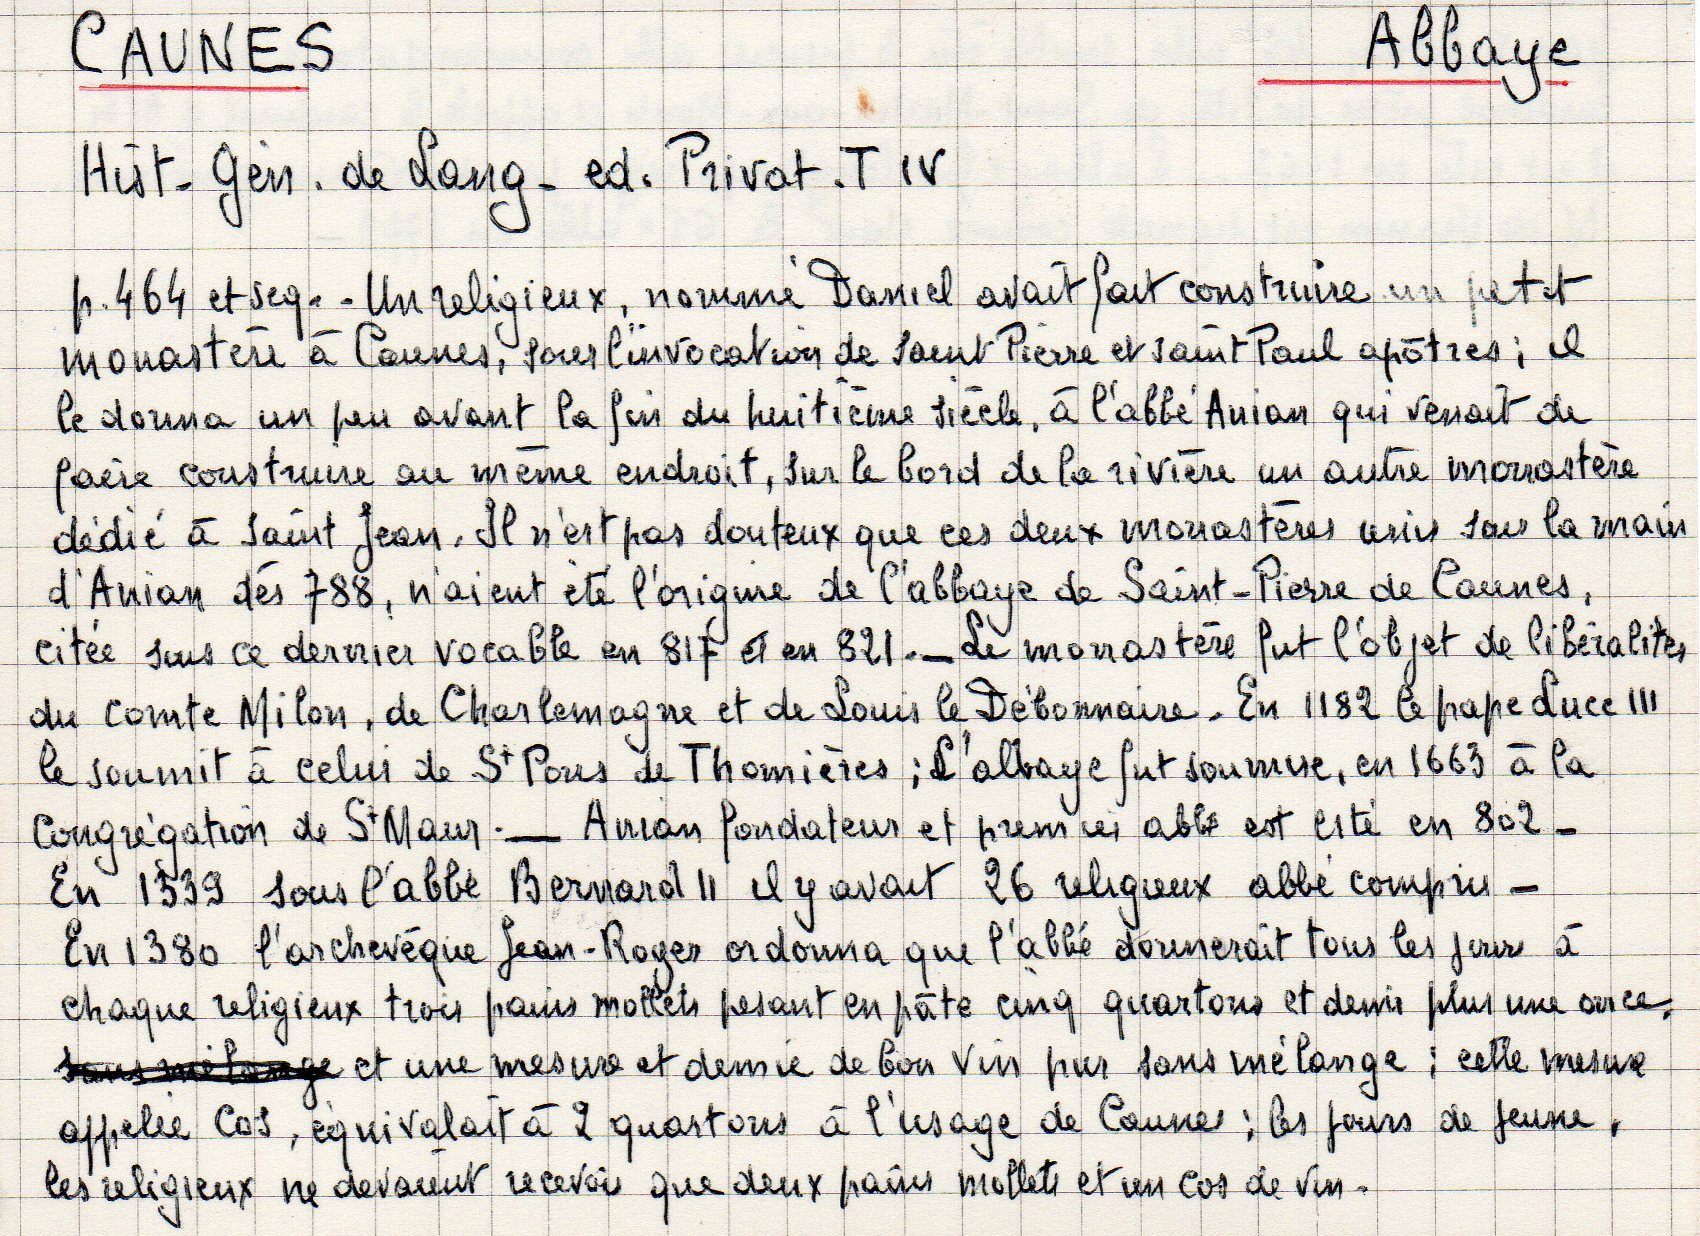 CAUNES Abbaye
Hist. Gén. de Lang. ed. Privat. T IV
p. 464 et seq. - Un religieux, nommé Daniel avait fait construire un petit
monastère à Caunes, sous l'invocation de saint Pierre et saint Paul apôtres ; il
le donna un peu avant la fin du huitième siècle, à l'abbé Anian qui venait de
faire construire au même endroit, sur le bord de la rivière un autre monastère
dédié à Saint Jean. Il n'est pas douteux que ces deux monastères unis sous la main
d'Anian dès 788, n'aient été l'origine de l'abbaye de Saint-Pierre de Caunes,
citée sous ce dernier vocable en 817 et en 821. — Le monastère fut l'objet de libéralités
du comte Milon, de Charlemagne et de Louis le Débonnaire. En 1182 le pape Luce III
le soumit à celui de St Pons de Thomières ; L'abbaye fut soumise, en 1663 à la
Congrégation de St Maur. — Anian fondateur et premier abbé est cité en 802 -
En 1339 sous l'abbé Bernard II il y avait 26 religieux abbé compris -
En 1380 l'archevêque Jean-Roger ordonna que l'abbé donnerait tous les jours à
chaque religieux trois pains mollets pesant en pâte cinq quartons et demi plus une once,
sans mélange et une mesure et demie de bon vin pur sans mélange ; cette mesure
appelée Cos, équivalait à 2 quartons à l'usage de Caunes ; les jours de jeune,
les religieux ne devaient recevoir que deux pains mollets et un cos de vin.